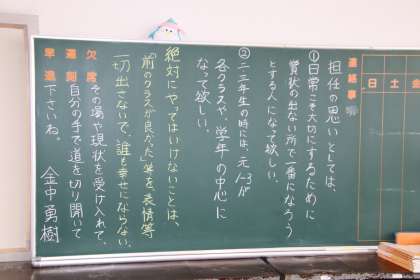 連絡事項
日 土 金
担任の思いとしては、
①日常こそ大切にするために
賞状の出ない所で一番になろう
とする人になって欲しい。
②二三年生の時には、元1-3が
各クラスや、学年の中心に
なって欲しい。
絶対にやってはいけないことは、
「前のクラスが良かった」等を、表情等
一切出さないで、誰も幸せにならない。
その場や現状を受け入れて、
自分の手で道を切り開いて
下さいね。 金中勇樹
欠席
遅刻
早退